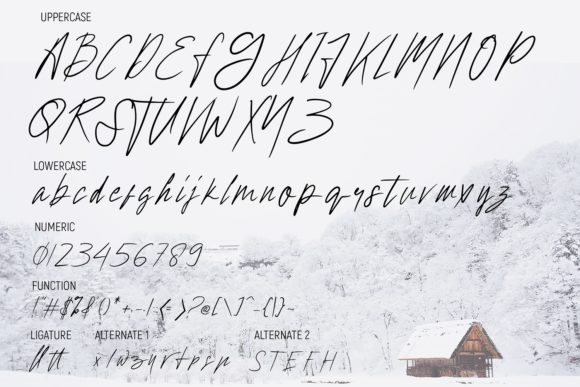 UPPERCASE
ABCDEFGHIJKLMNOP
QRSTUVWXYZ
LOWERCASE
abcdefghijklmnopqrstuvwxyz
NUMERIC
0123456789
FUNCTION
!"#$%&()*+-/<>?@[\]^_{|}~
LIGATURE ALTERNATE 1 ALTERNATE 2
ll tt STEFH